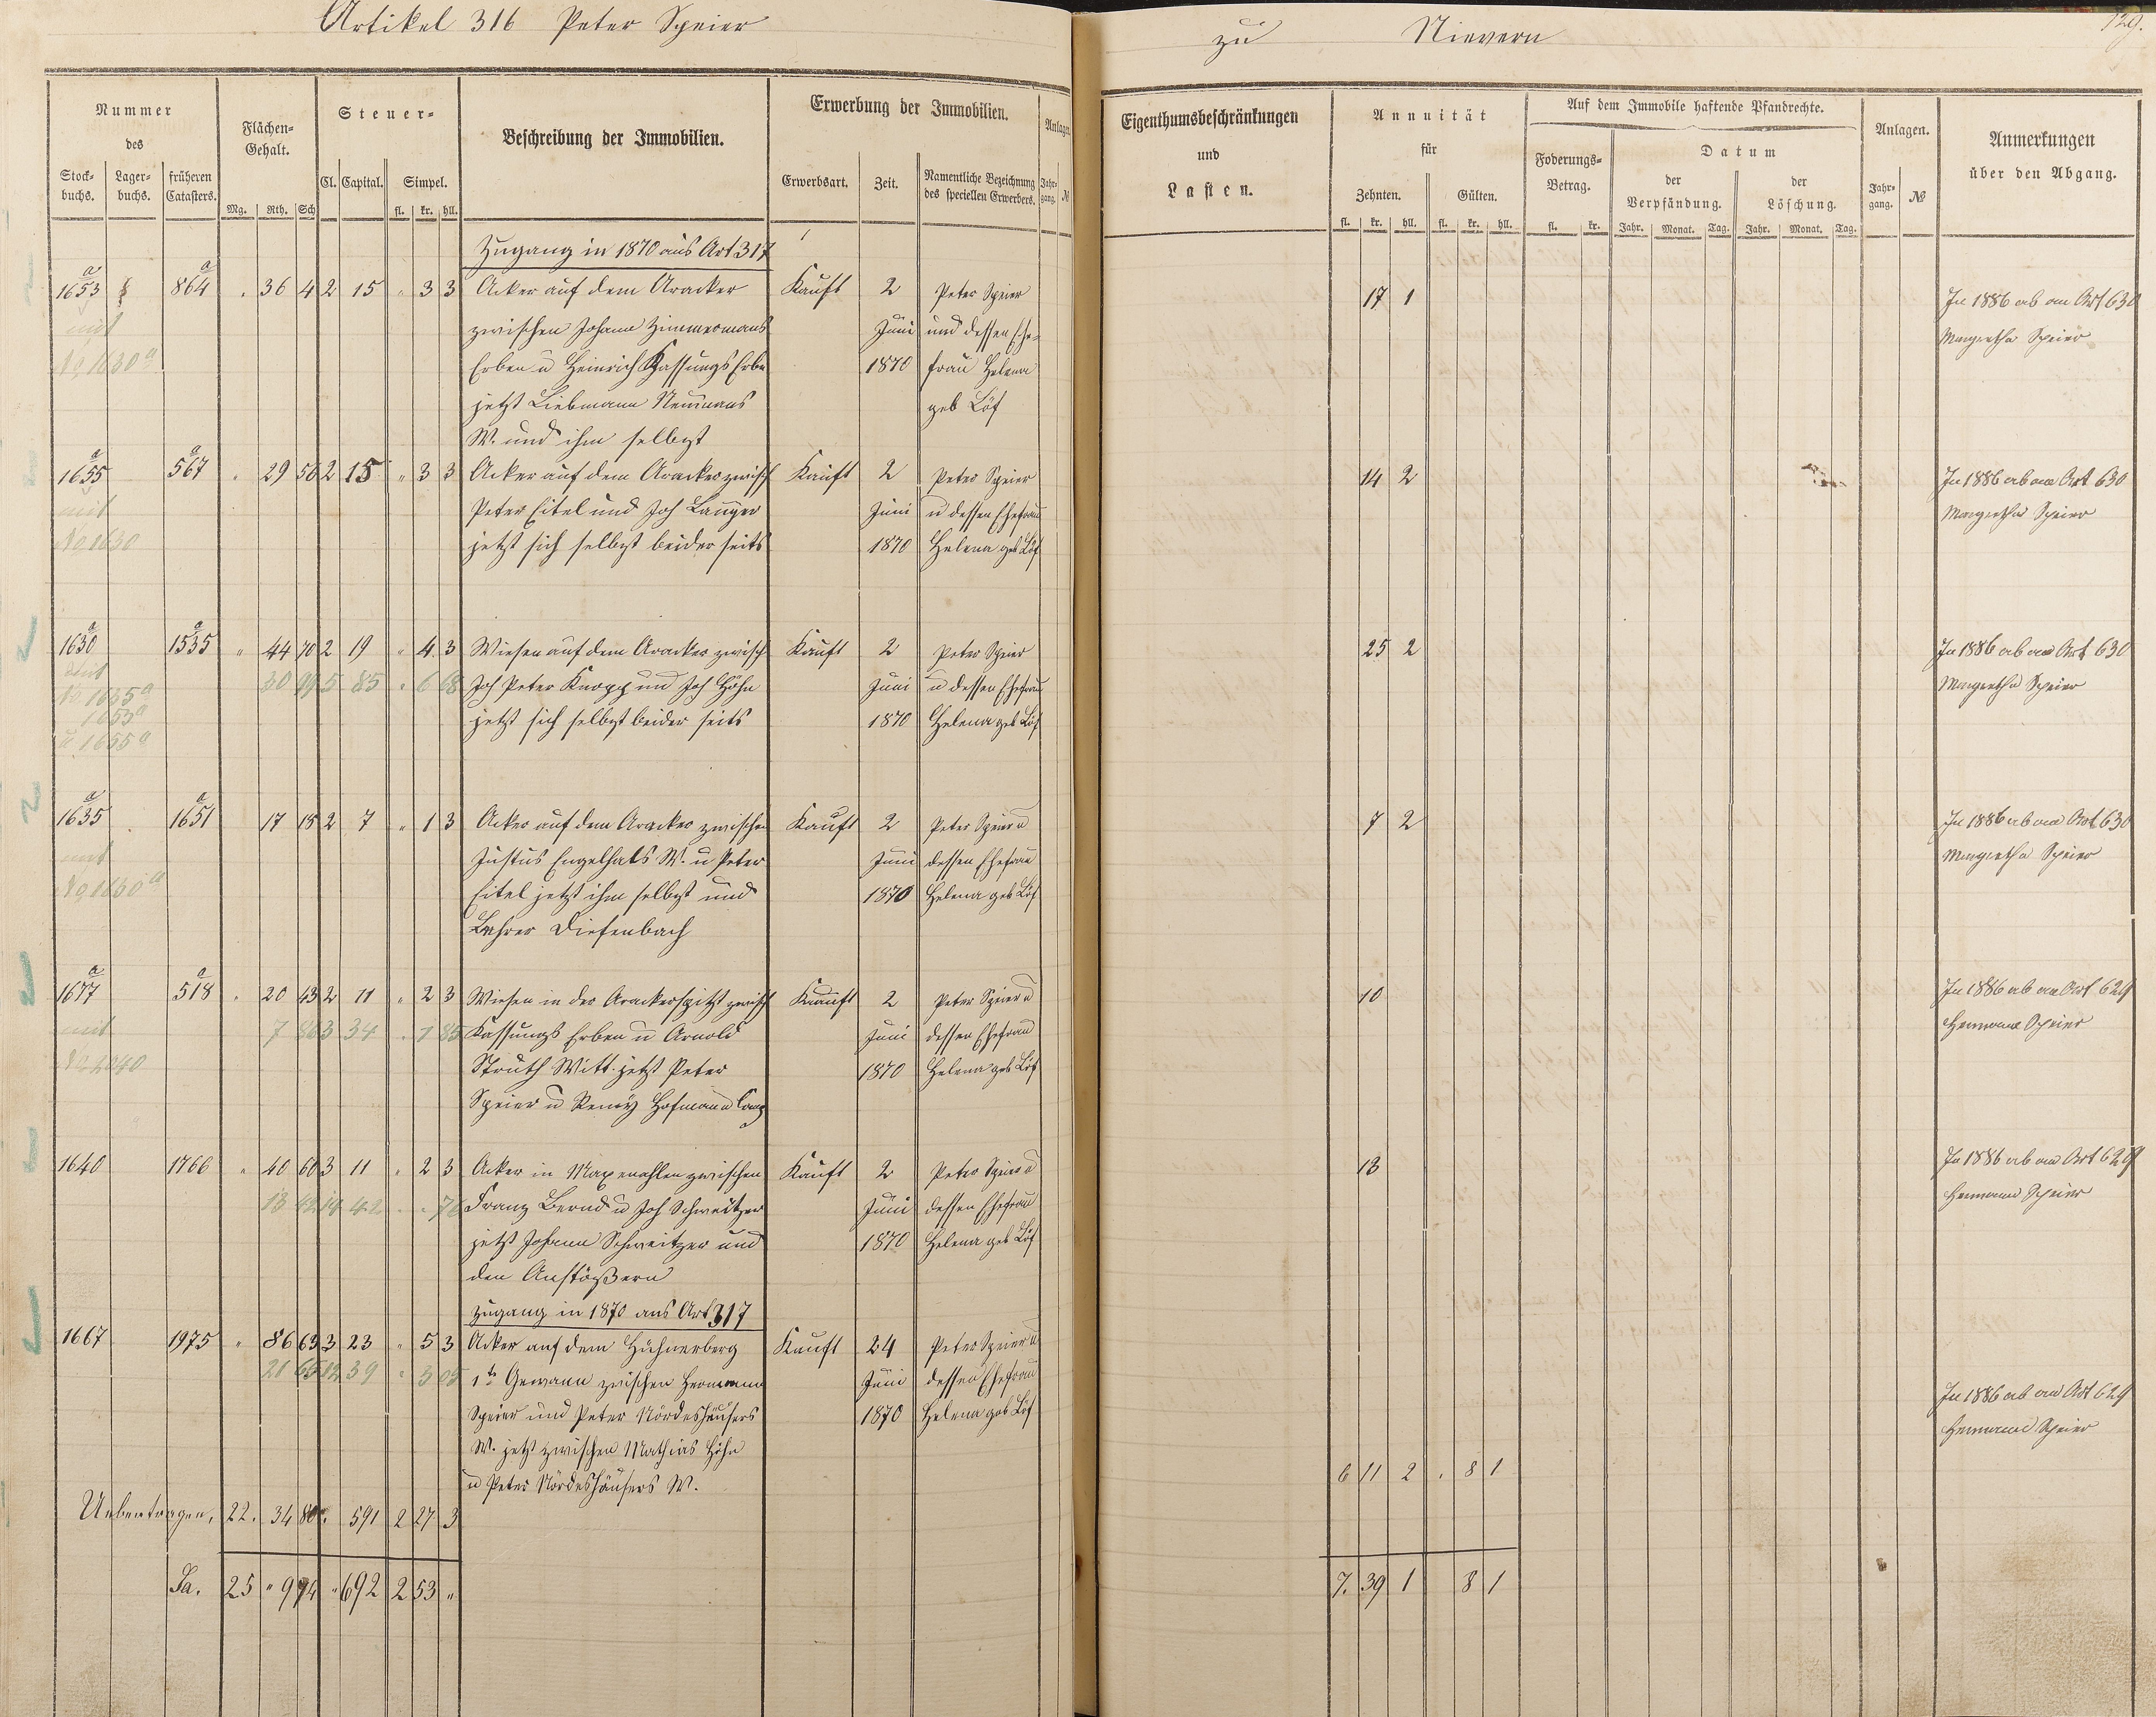 Artikel 316 Peter Speier
zu Nievern
129.
Nummer
des
Stock-buchs. Lager-buchs. früheren Catasters.
Flächen-Gehalt.
Mg. Rth. Sch
Steuer-
Cl. Capital. Simpel.
fl. kr. hll.
Beschreibung der Immobilien.
Erwerbung der Immobilien.
Erwerbsart. Zeit. Namentliche Bezeichnung des speciellen Erwerbers.
Anlagen
Jahr-gang. №
Eigenthumsbeschränkungen
und
Lasten.
Annuität
für
Zehnten. Gülten.
fl. kr. hll. fl. kr. hll.
Auf dem Immobile haftende Pfandrechte.
Foderungs-Betrag.
fl. kr.
Datum
der Verpfändung. der Löschung.
Jahr. Monat. Tag. Jahr. Monat. Tag.
Anlagen.
Jahr-gang. №
Anmerkungen
über den Abgang.
Zugang in 1870 aus Art 317
1653 a 864 a . 36 4 2 15 " 3 3 Acker auf dem Aracker Kauft 2 Peter Speier 17 1 In 1886 ab an Art 630
mit zwischen Johann Zimmermans Juni und dessen Ehe- Margretha Speier
No 1630 a Erben u Heinrich Kassungs Erben 1870 frau Helena
jetzt Liebmann Neumans geb Löf
W. und ihm selbst
1655 a 567 a . 29 56 2 15 " 3 3 Acker auf dem Aracker zwisch Kauft 2 Peter Speier 14 2 In 1886 ab an Art 630
mit Peter Eitel und Joh Langer Juni u dessen Ehefrau Margretha Speier
No 1630 jetzt sich selbst beider seits 1870 Helena geb Löf
1630 a 1535 a " 44 70 2 19 " 4 3 Wiesen auf dem Aracker zwisch Kauft 2 Peter Speier 25 2 In 1886 ab an Art 630
mit 30 99 5 85 " 6 68 Joh Peter Knopp und Joh Höhn Juni u dessen Ehefrau Margretha Speier
No 1635 a jetzt sich selbst beider seits 1870 Helena geb Löf
1653 a
u 1655 a
1635 a 1651 a 17 18 2 7 " 1 3 Acker auf dem Aracker zwischen Kauft 2 Peter Speier u 7 2 In 1886 ab an Art 630
mit Justus Engelhats W. u Peter Juni dessen Ehefrau Margretha Speier
No 1630 a Eitel jetzt ihm selbst und 1870 Helena geb Löf
Lehrer Diefenbach
1677 a 518 a . 20 43 2 11 " 2 3 Wiesen in der Arackerspitz zwisch Kauft 2 Peter Speier u 10 In 1886 ab an Art 629
mit 7 86 3 34 . 1 85 Kassungs Erben u Arnold Juni dessen Ehefrau Hermann Speier
Struth Witt. jetzt Peter 1870 Helena geb Löf
Speier u Remy Hofmann Comp
1640 1766 " 40 60 3 11 . 2 3 Acker in Maxenahlen zwischen Kauft 2 Peter Speier u 13 In 1886 ab an Art 629
Franz Bernd u Joh Schweitzer Juni dessen Ehefrau Hermann Speier
jetzt Johann Schweitzer und 1870 Helena geb Löf
den Anstößern
Zugang in 1870 aus Art 317
1667 1975 " 86 63 3 23 " 5 3 Acker auf dem Hühnerberg Kauft 24 Peter Speier u
21 65 12 39 " 3 05 1te Gewann zwischen Hermann Juni dessen Ehefrau In 1886 ab an Art 629
Speier und Peter Nördeshäusers 1870 Helena geb Löf Hermann Speier
W. jetzt zwischen Mathias Höhn
u Peter Nördeshäusers W. 6 11 2 . 8 1
Uebertragen, 22. 34 80 591 2 27 3
Sa. 25 " 9 94 " 692 2 53 " 7. 39 1 8 1